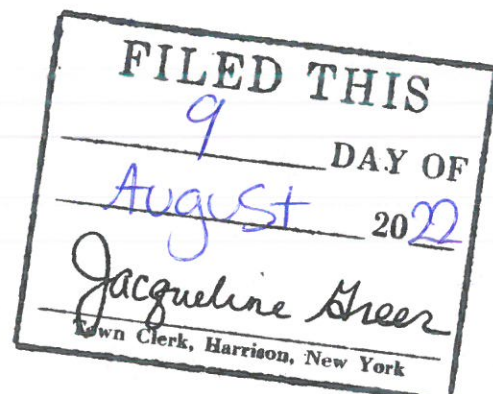 FILED THIS
9 DAY OF
August 2022
Jacqueline Greer
Town Clerk, Harrison, New York